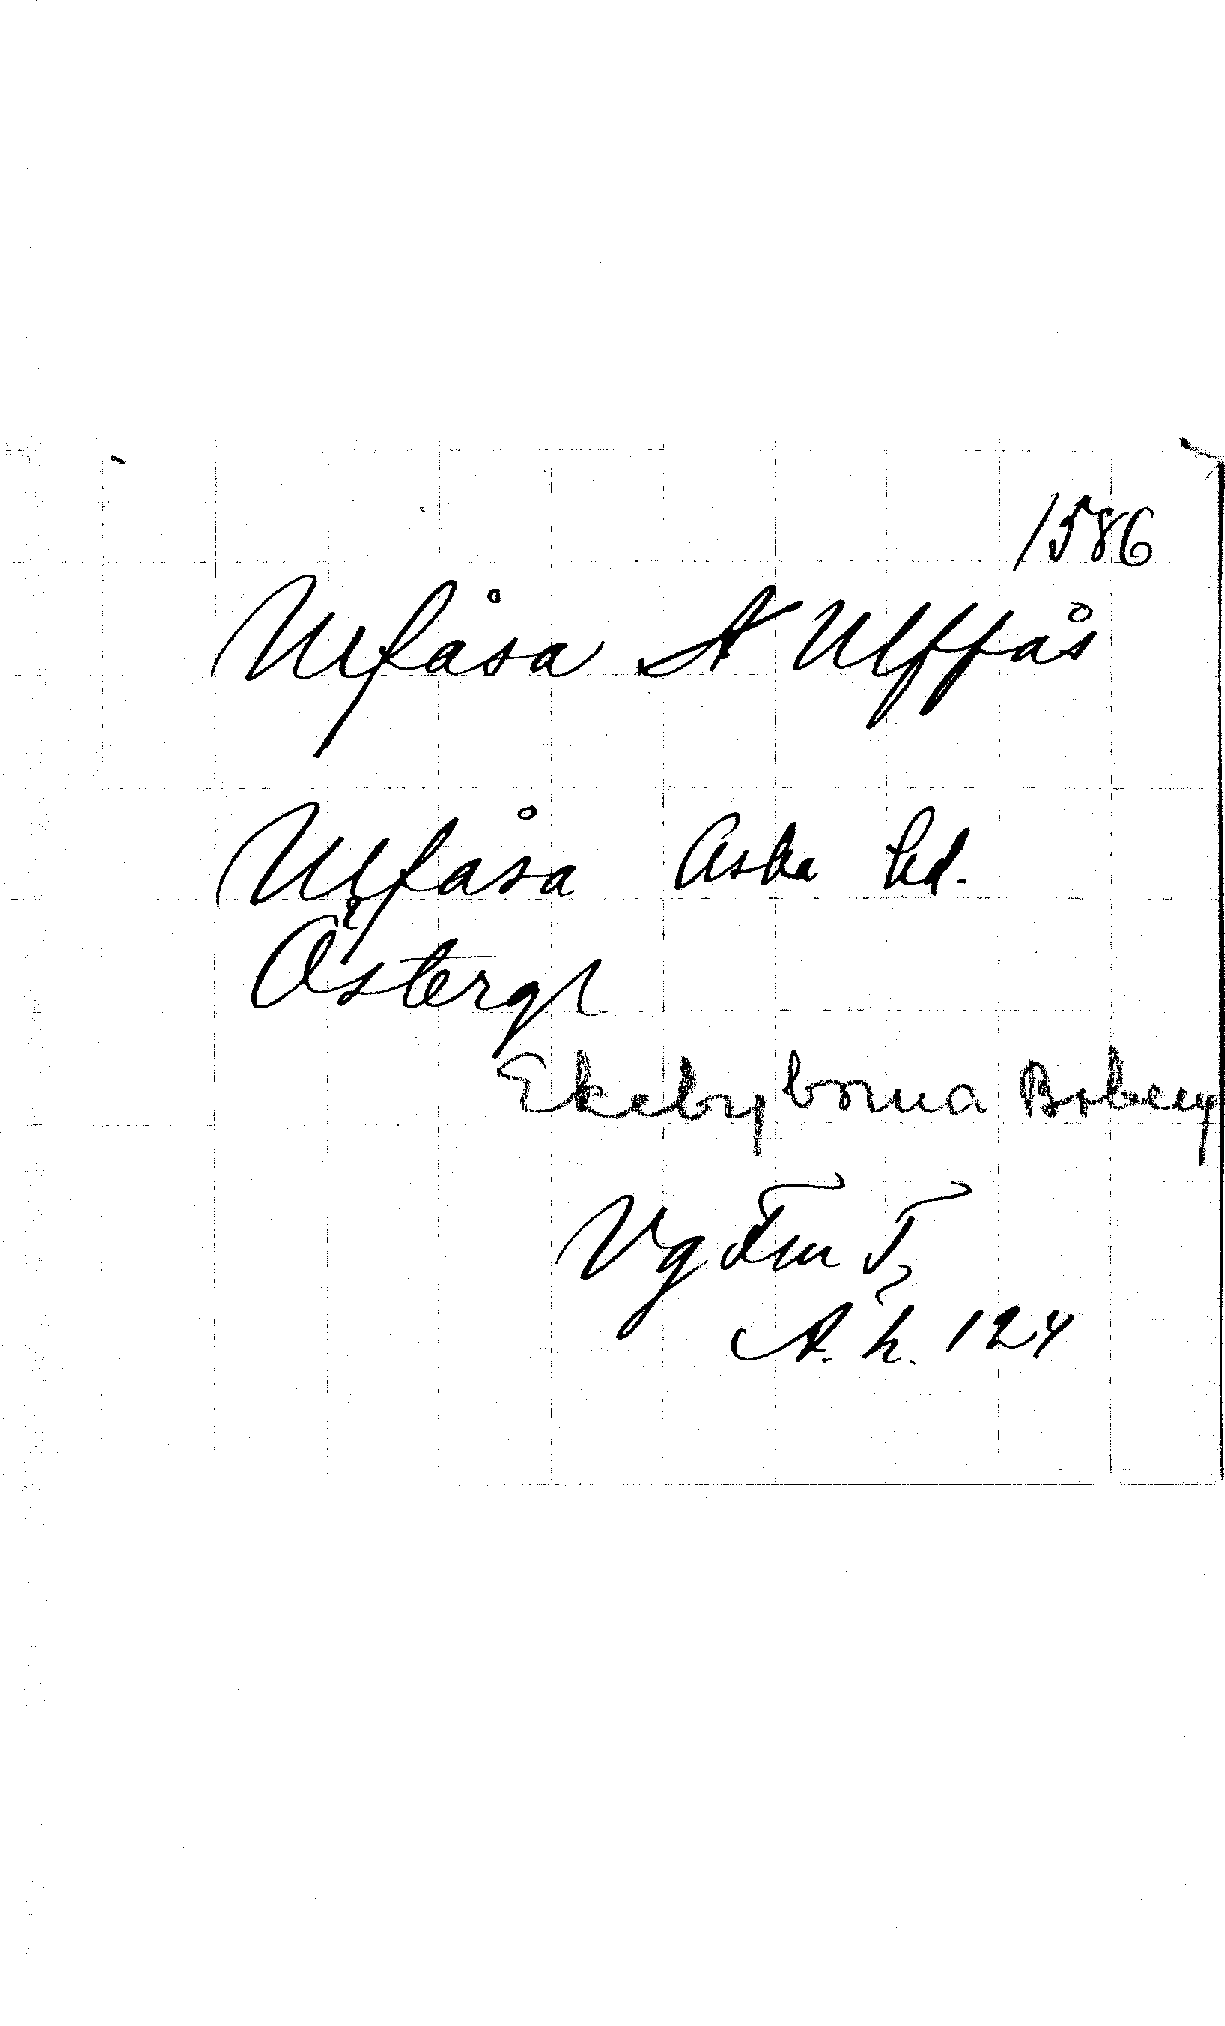 1586
Ulfåsa A Ulffås
Ulfåsa Aska hd.
Östergl
Ekebyborna Boberg
Vg Fm T
A. h. 124